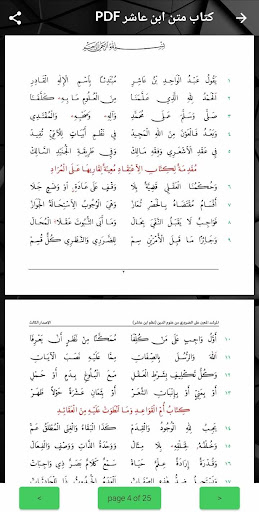 كتاب متن ابن عاشر PDF
بسم الله الرحمن الرحيم
١ يَقُولُ عَبْدُ الْوَاحِدِ بْنُ عَاشِرِ مُبْتَدِئًا بِاسْمِ الْإِلَهِ الْقَادِرِ
٢ الْحَمْدُ لِلَّهِ الَّذِي عَلَّمَنَا مِنَ الْعُلُومِ مَا بِهِ كَلَّفَنَا
٣ صَلَّى وَسَلَّمَ عَلَى مُحَمَّدِ وَآلِهِ وَصَحْبِهِ وَالْمُقْتَدِي
٤ وَبَعْدُ فَالْعَوْنُ مِنَ اللهِ الْمَجِيدْ فِي نَظْمِ أَبْيَاتٍ لِلْأُمِّيِّ تُفِيدْ
٥ فِي عَقْدِ الْأَشْعَرِي وَفِقْهِ مَالِكْ وَفِي طَرِيقَةِ الْجُنَيْدِ السَّالِكْ
مُقَدِّمَةٌ لِكِتَابِ الِاعْتِقَادِ مُعِينَةٌ لِقَارِئِهَا عَلَى الْمُرَادِ
٦ وَحُكْمُنَا الْعَقْلِي قَضِيَّةٌ بِلَا وَقْفٍ عَلَى عَادَةٍ أَوْ وَضْعٍ جَلَا
٧ أَقْسَامُ مُقْتَضَاهُ بِالْحَصْرِ تُمَازْ وَهِيَ الْوُجُوبُ الِاسْتِحَالَةُ الْجَوَازْ
٨ فَوَاجِبٌ لَا يَقْبَلُ النَّفْيَ بِحَالْ وَمَا أَبَى الثُّبُوتَ عَقْلًا الْمُحَالْ
٩ وَجَائِزًا مَا قَبِلَ الْأَمْرَيْنِ سِمْ لِلضَّرُورِي وَالنَّظَرِي كُلٌّ قُسِمْ
١٠ أَوَّلُ وَاجِبٍ عَلَى مَنْ كُلِّفَا مُمَكَّنًا مِنْ نَظَرٍ أَنْ يَعْرِفَا
١١ اللهَ وَالرُّسْلَ بِالصِّفَاتِ مِمَّا عَلَيْهِ نَصَبَ الْآيَاتِ
١٢ وَكُلُّ تَكْلِيفٍ بِشَرْطِ الْعَقْلِ مَعَ الْبُلُوغِ بِدَمٍ أَوْ حَمْلِ
١٣ أَوْ بِمَنِيٍّ أَوْ بِإِنْبَاتِ الشَّعَرْ أَوْ بِثَمَانِ عَشْرَةٍ حَوْلًا ظَهَرْ
كِتَابُ أُمِّ الْقَوَاعِدِ وَمَا انْطَوَتْ عَلَيْهِ مِنَ الْعَقَائِدِ
١٤ يَجِبُ لِلَّهِ الْوُجُودُ وَالْقِدَمْ كَذَا الْبَقَاءُ وَالْغِنَى الْمُطْلَقُ عَمْ
١٥ وَخُلْفُهُ لِخَلْقِهِ بِلَا مِثَالْ وَوَحْدَةُ الذَّاتِ وَوَصْفٍ وَالْفِعَالْ
١٦ وَقُدْرَةٌ إِرَادَةٌ عِلْمٌ حَيَاةْ سَمْعٌ كَلَامٌ بَصَرٌ ذِي وَاجِبَاتْ
< page 4 of 25 >